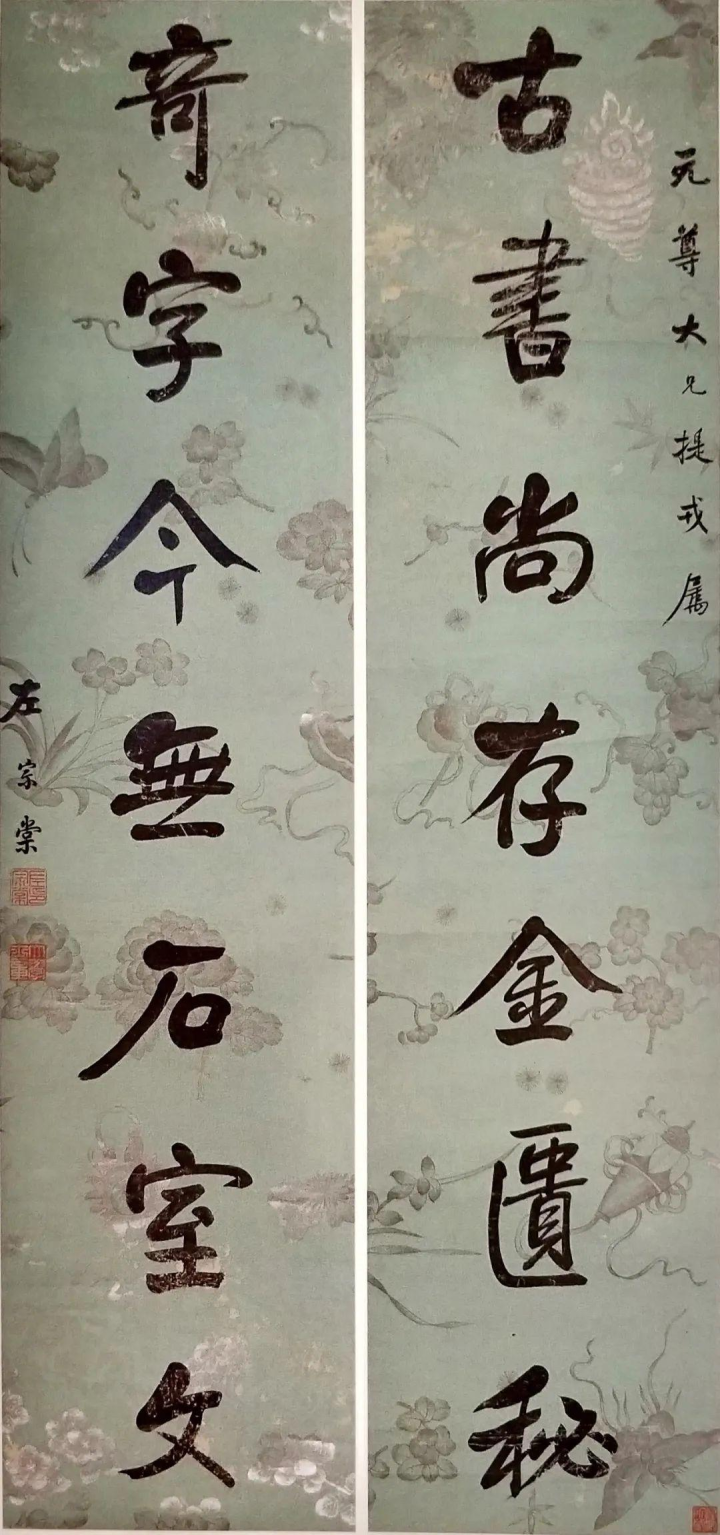 元尊大兄提戎属
古書尚存金匱秘
奇字今無石室文
左宗棠